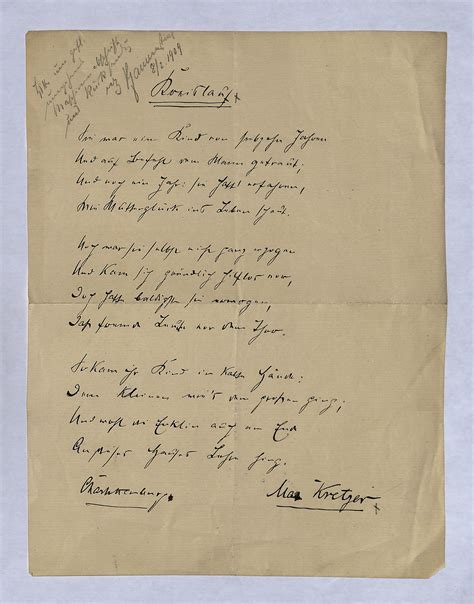 8/2 1909
Kreislauf
Sie war ein Kind von siebzehn Jahren
Und auf Befehl dem Mann getraut;
Und noch ein Jahr: sie hatt' erfahren,
Wie Mutterglück ins Leben schaut.
Noch war sie selbst nicht ganz erzogen
Und kam sich gründlich hilflos vor,
Doch hatte baldigst sie erwogen,
Daß fremde Leute vor dem Thor.
So kam ihr Kind in kalte Hände:
Dem Kleinen wie's dem großen ging;
Und wohl die Enklin auch am End
An dieses Hauses
Charlottenburg.
Max Kretzer